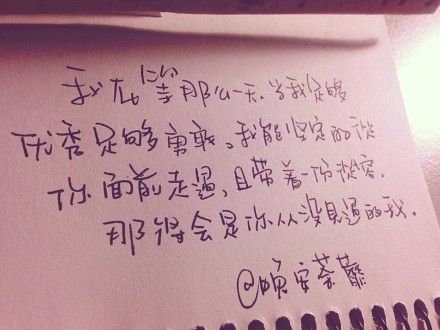 我在等那么一天,当我足够
优秀足够勇敢。我能坚定的从
你面前走过,且带着一份从容,
那将会是你从没见过的我。
@晚安荼蘼